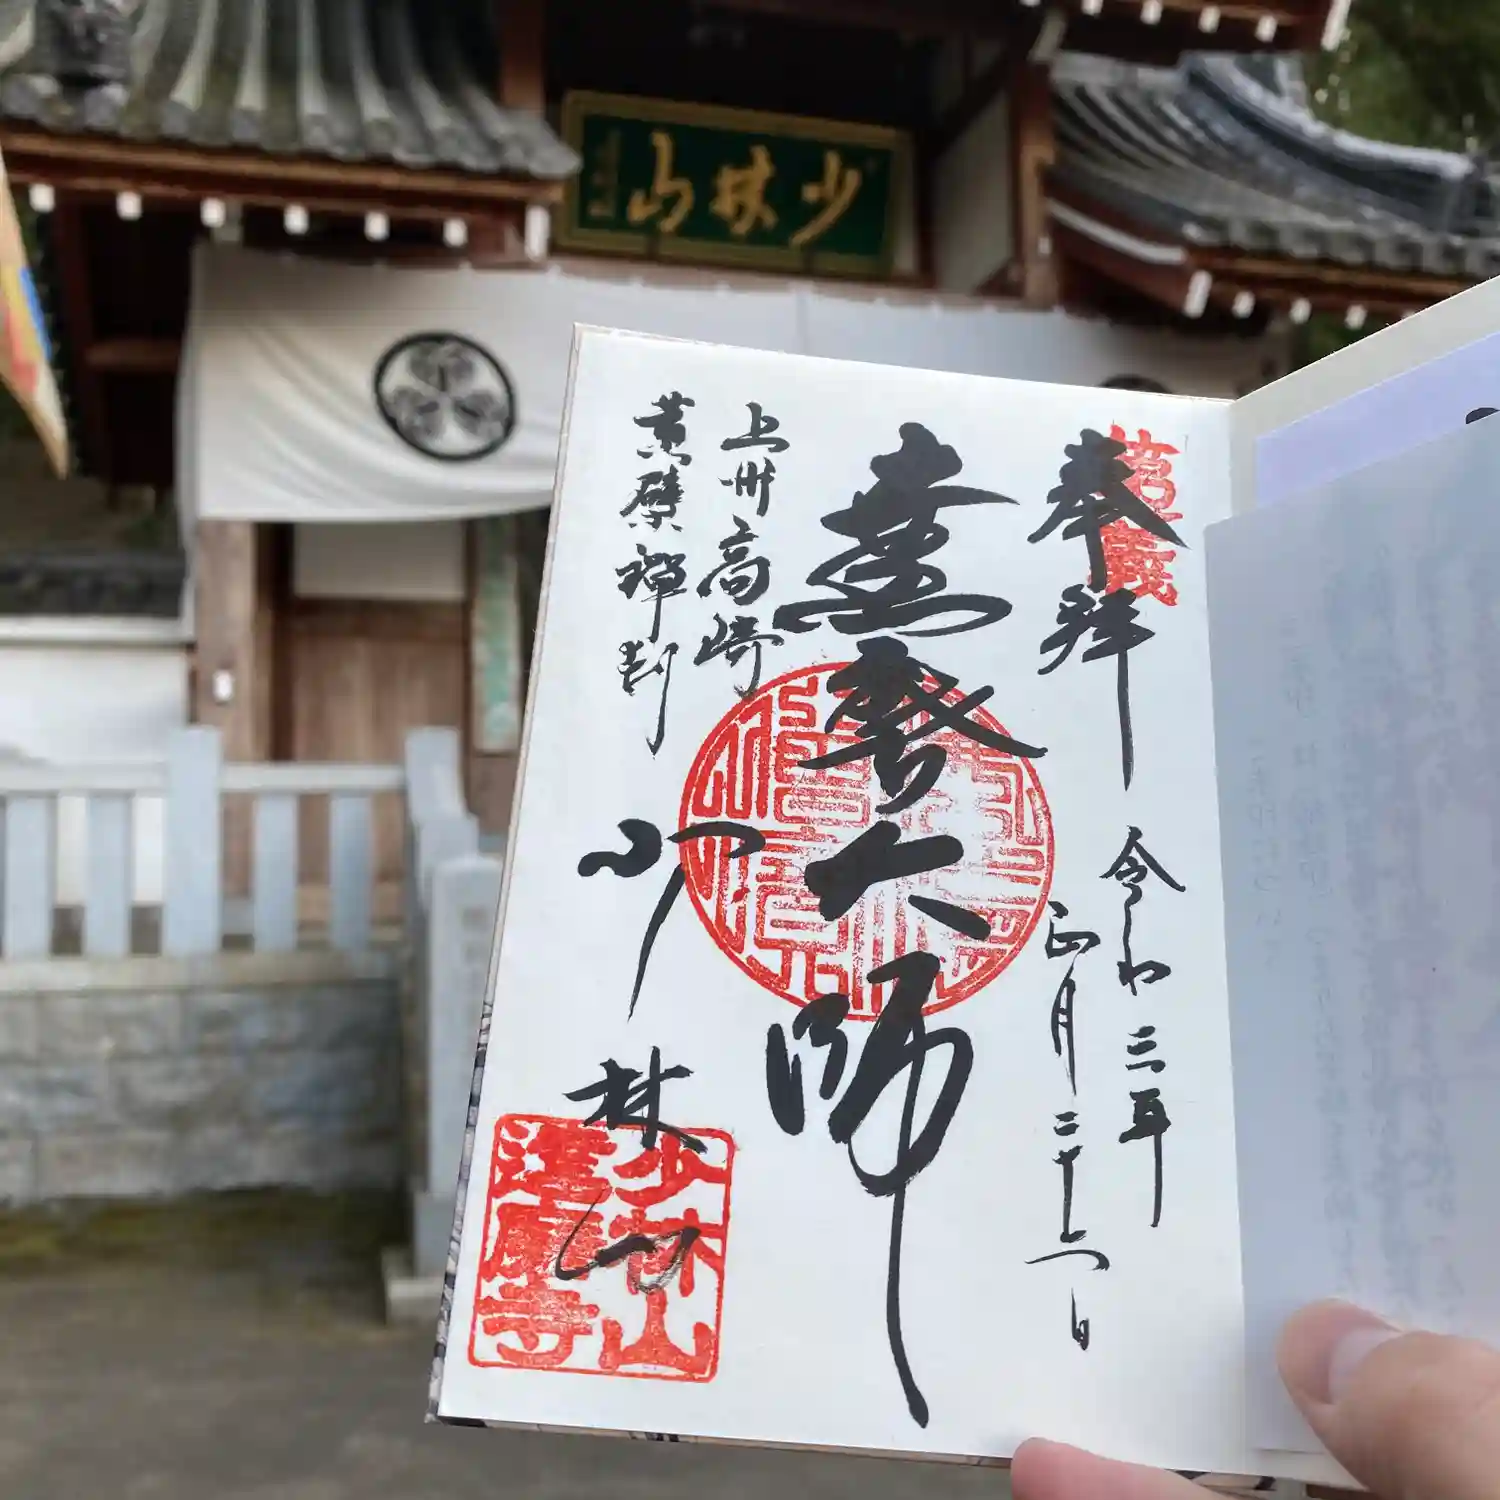 少林山
奉拝
第一義
令和三年
正月二十七日
達磨大師
上州高崎
黄檗禅刹
少林山
少林山
達磨寺